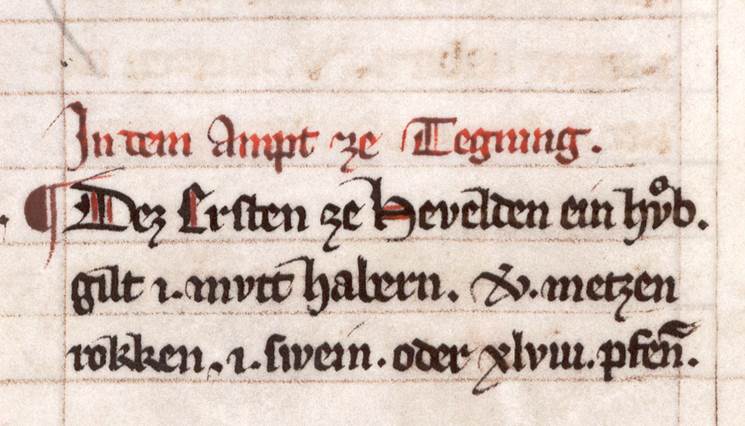 In dem Ampt ze Tegning.
¶ Dez Ersten ze Hevelden ein hvͦb.
gilt i. mvtt habern. xv. metzen
rokken. i. swein. oder xlviii. pfen̄.